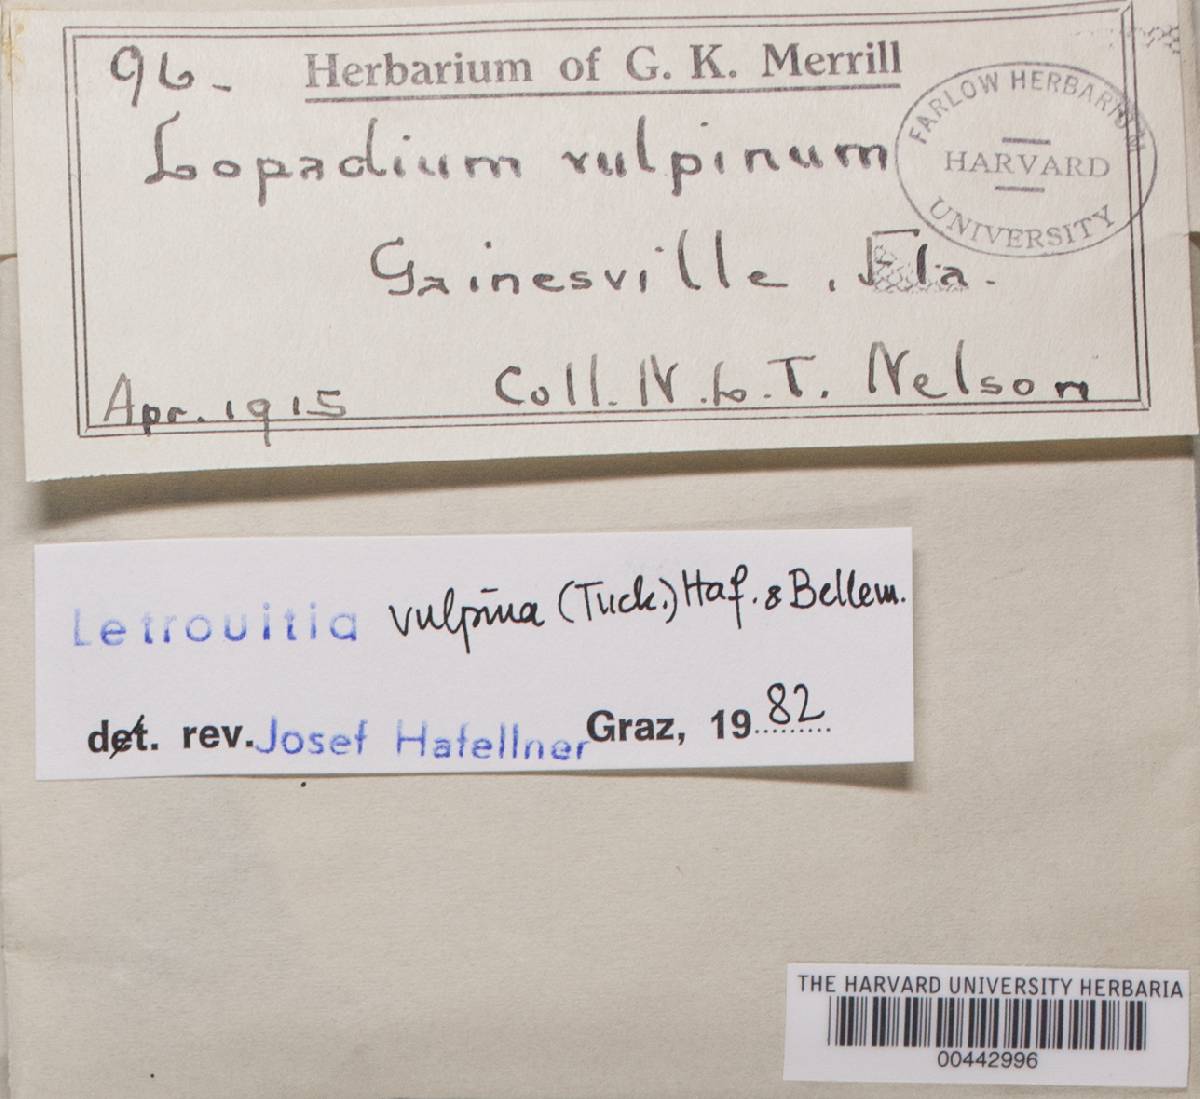 96- Herbarium of G. K. Merrill
Lopadium vulpinum
FARLOW HERBARIUM
HARVARD
UNIVERSITY
Gainesville, Fla.
Apr. 1915 Coll. N.L.T. Nelson
Letrouitia vulpina (Tuck.) Haf. & Bellem.
det. rev. Josef Hafellner Graz, 1982
THE HARVARD UNIVERSITY HERBARIA
00442996